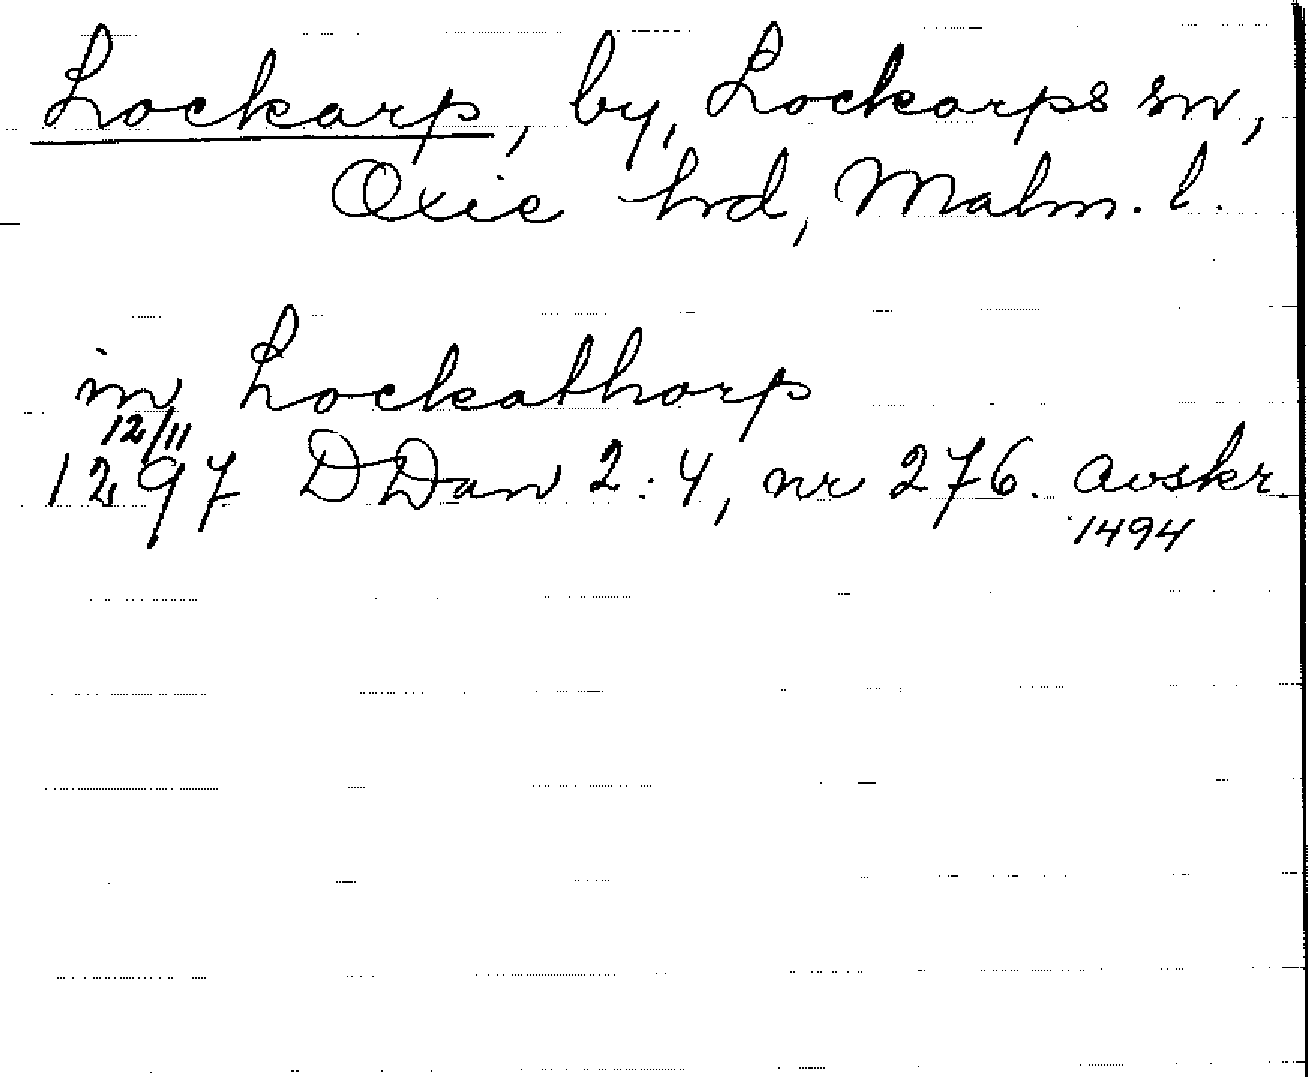 Lockarp, by, Lockarps sn,
Oxie hrd, Malm. l.
in Lockathorp
12/11
1297 DDan 2:4, nr 276. avskr.
1494